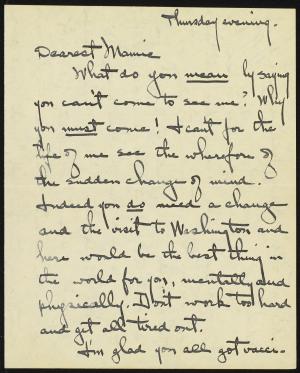 Thursday evening.
Dearest Mamie
What do you mean by saying
you can't come to see me? Why
you must come! I can't for the
life of me see the wherefore of
the sudden change of mind.
Indeed you do need a change
and the visit to Washington and
here would be the best thing in
the world for you, mentally and
physically. Don't work too hard
and get all tired out.
I'm glad you all got vacci-